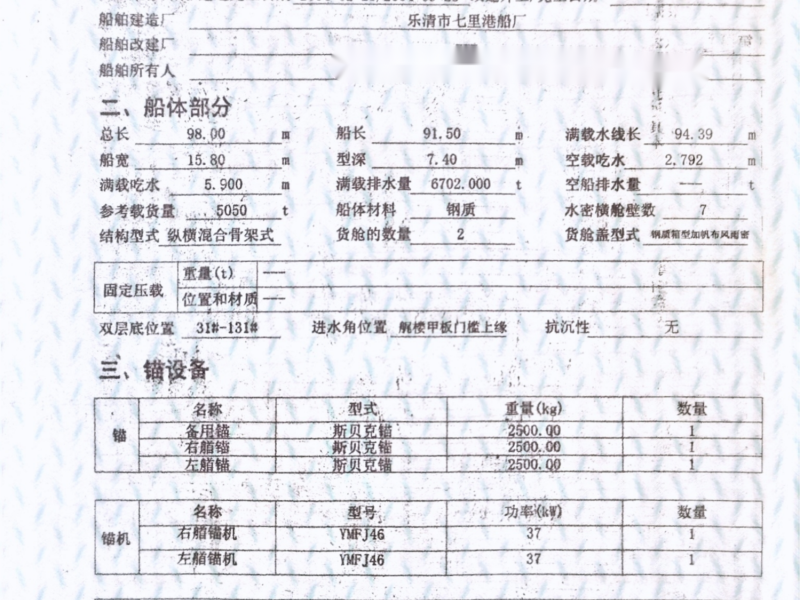 船舶建造厂 乐清市七里港船厂
船舶改建厂
船舶所有人
二、船体部分
总长 98.00 m 船长 91.50 m 满载水线长 94.39 m
船宽 15.80 m 型深 7.40 m 空载吃水 2.792 m
满载吃水 5.900 m 满载排水量 6702.000 t 空船排水量 —— t
参考载货量 5050 t 船体材料 钢质 水密横舱壁数 7
结构型式 纵横混合骨架式 货舱的数量 2 货舱盖型式 钢质箱型加帆布风雨密
固定压载 重量(t) ——
位置和材质 ——
双层底位置 31#-131# 进水角位置 艉楼甲板门槛上缘 抗沉性 无
三、锚设备
锚 名称 型式 重量(kg) 数量
备用锚 斯贝克锚 2500.00 1
右艏锚 斯贝克锚 2500.00 1
左艏锚 斯贝克锚 2500.00 1
锚机 名称 型号 功率(kW) 数量
右艏锚机 YMFJ46 37 1
左艏锚机 YMFJ46 37 1